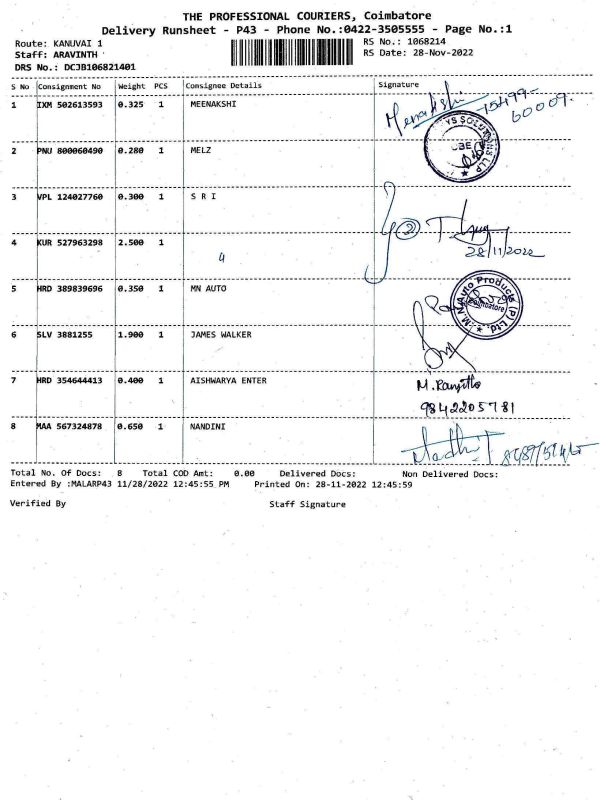 THE PROFESSIONAL COURIERS, Coimbatore
Delivery Runsheet - P43 - Phone No.:0422-3505555 - Page No.:1
Route: KANUVAI 1 RS No.: 1068214
Staff: ARAVINTH RS Date: 28-Nov-2022
DRS No.: DCJB106821401
S No Consignment No Weight PCS Consignee Details Signature
1 IXM 502613593 0.325 1 MEENAKSHI Meenakshi
60009.
2 PNU 800060490 0.280 1 MELZ
3 VPL 124027760 0.300 1 S R I
4 KUR 527963298 2.500 1 28/11/2022
5 HRD 389839696 0.350 1 MN AUTO M.N.Auto Products (P) Ltd. Coimbatore
6 SLV 3881255 1.900 1 JAMES WALKER
7 HRD 354644413 0.400 1 AISHWARYA ENTER M. Ranjitha
9842205781
8 MAA 567324878 0.650 1 NANDINI
Total No. Of Docs: 8 Total COD Amt: 0.00 Delivered Docs: Non Delivered Docs:
Entered By :MALARP43 11/28/2022 12:45:55 PM Printed On: 28-11-2022 12:45:59
Verified By Staff Signature